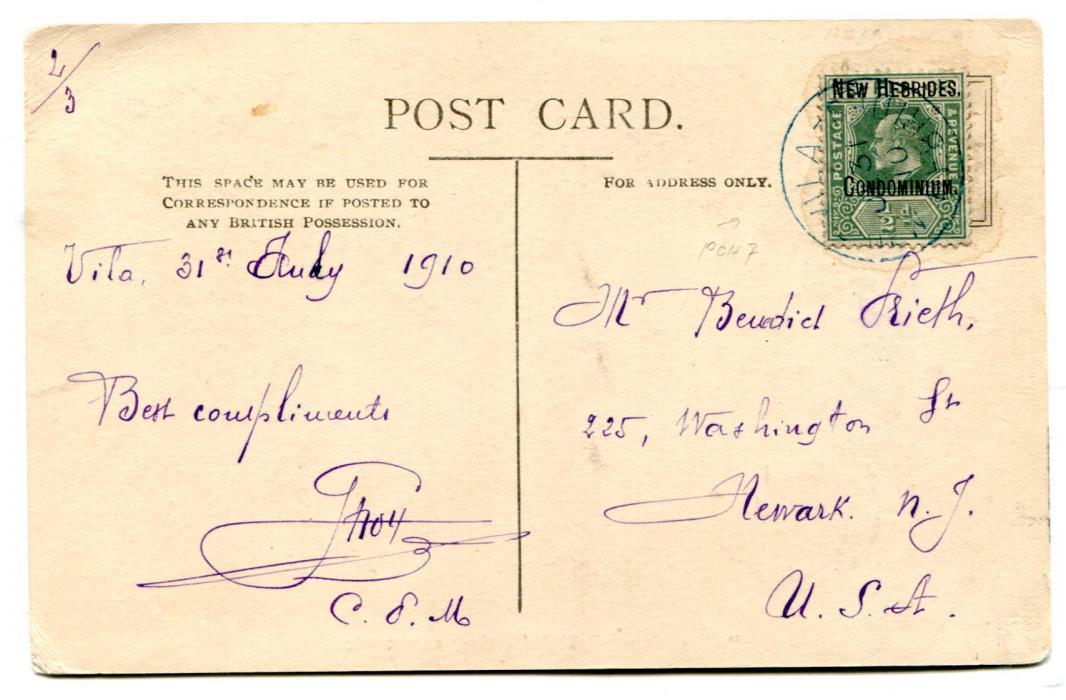 2/3
POST CARD.
THIS SPACE MAY BE USED FOR
CORRESPONDENCE IF POSTED TO
ANY BRITISH POSSESSION.
Vila, 31st July 1910
Best compliments
FOR ADDRESS ONLY.
NEW HEBRIDES.
POSTAGE & REVENUE
CONDOMINIUM.
½d
VILA
PC47
Mr Benedict
225, Washington St
Newark. N.J.
U.S.A.